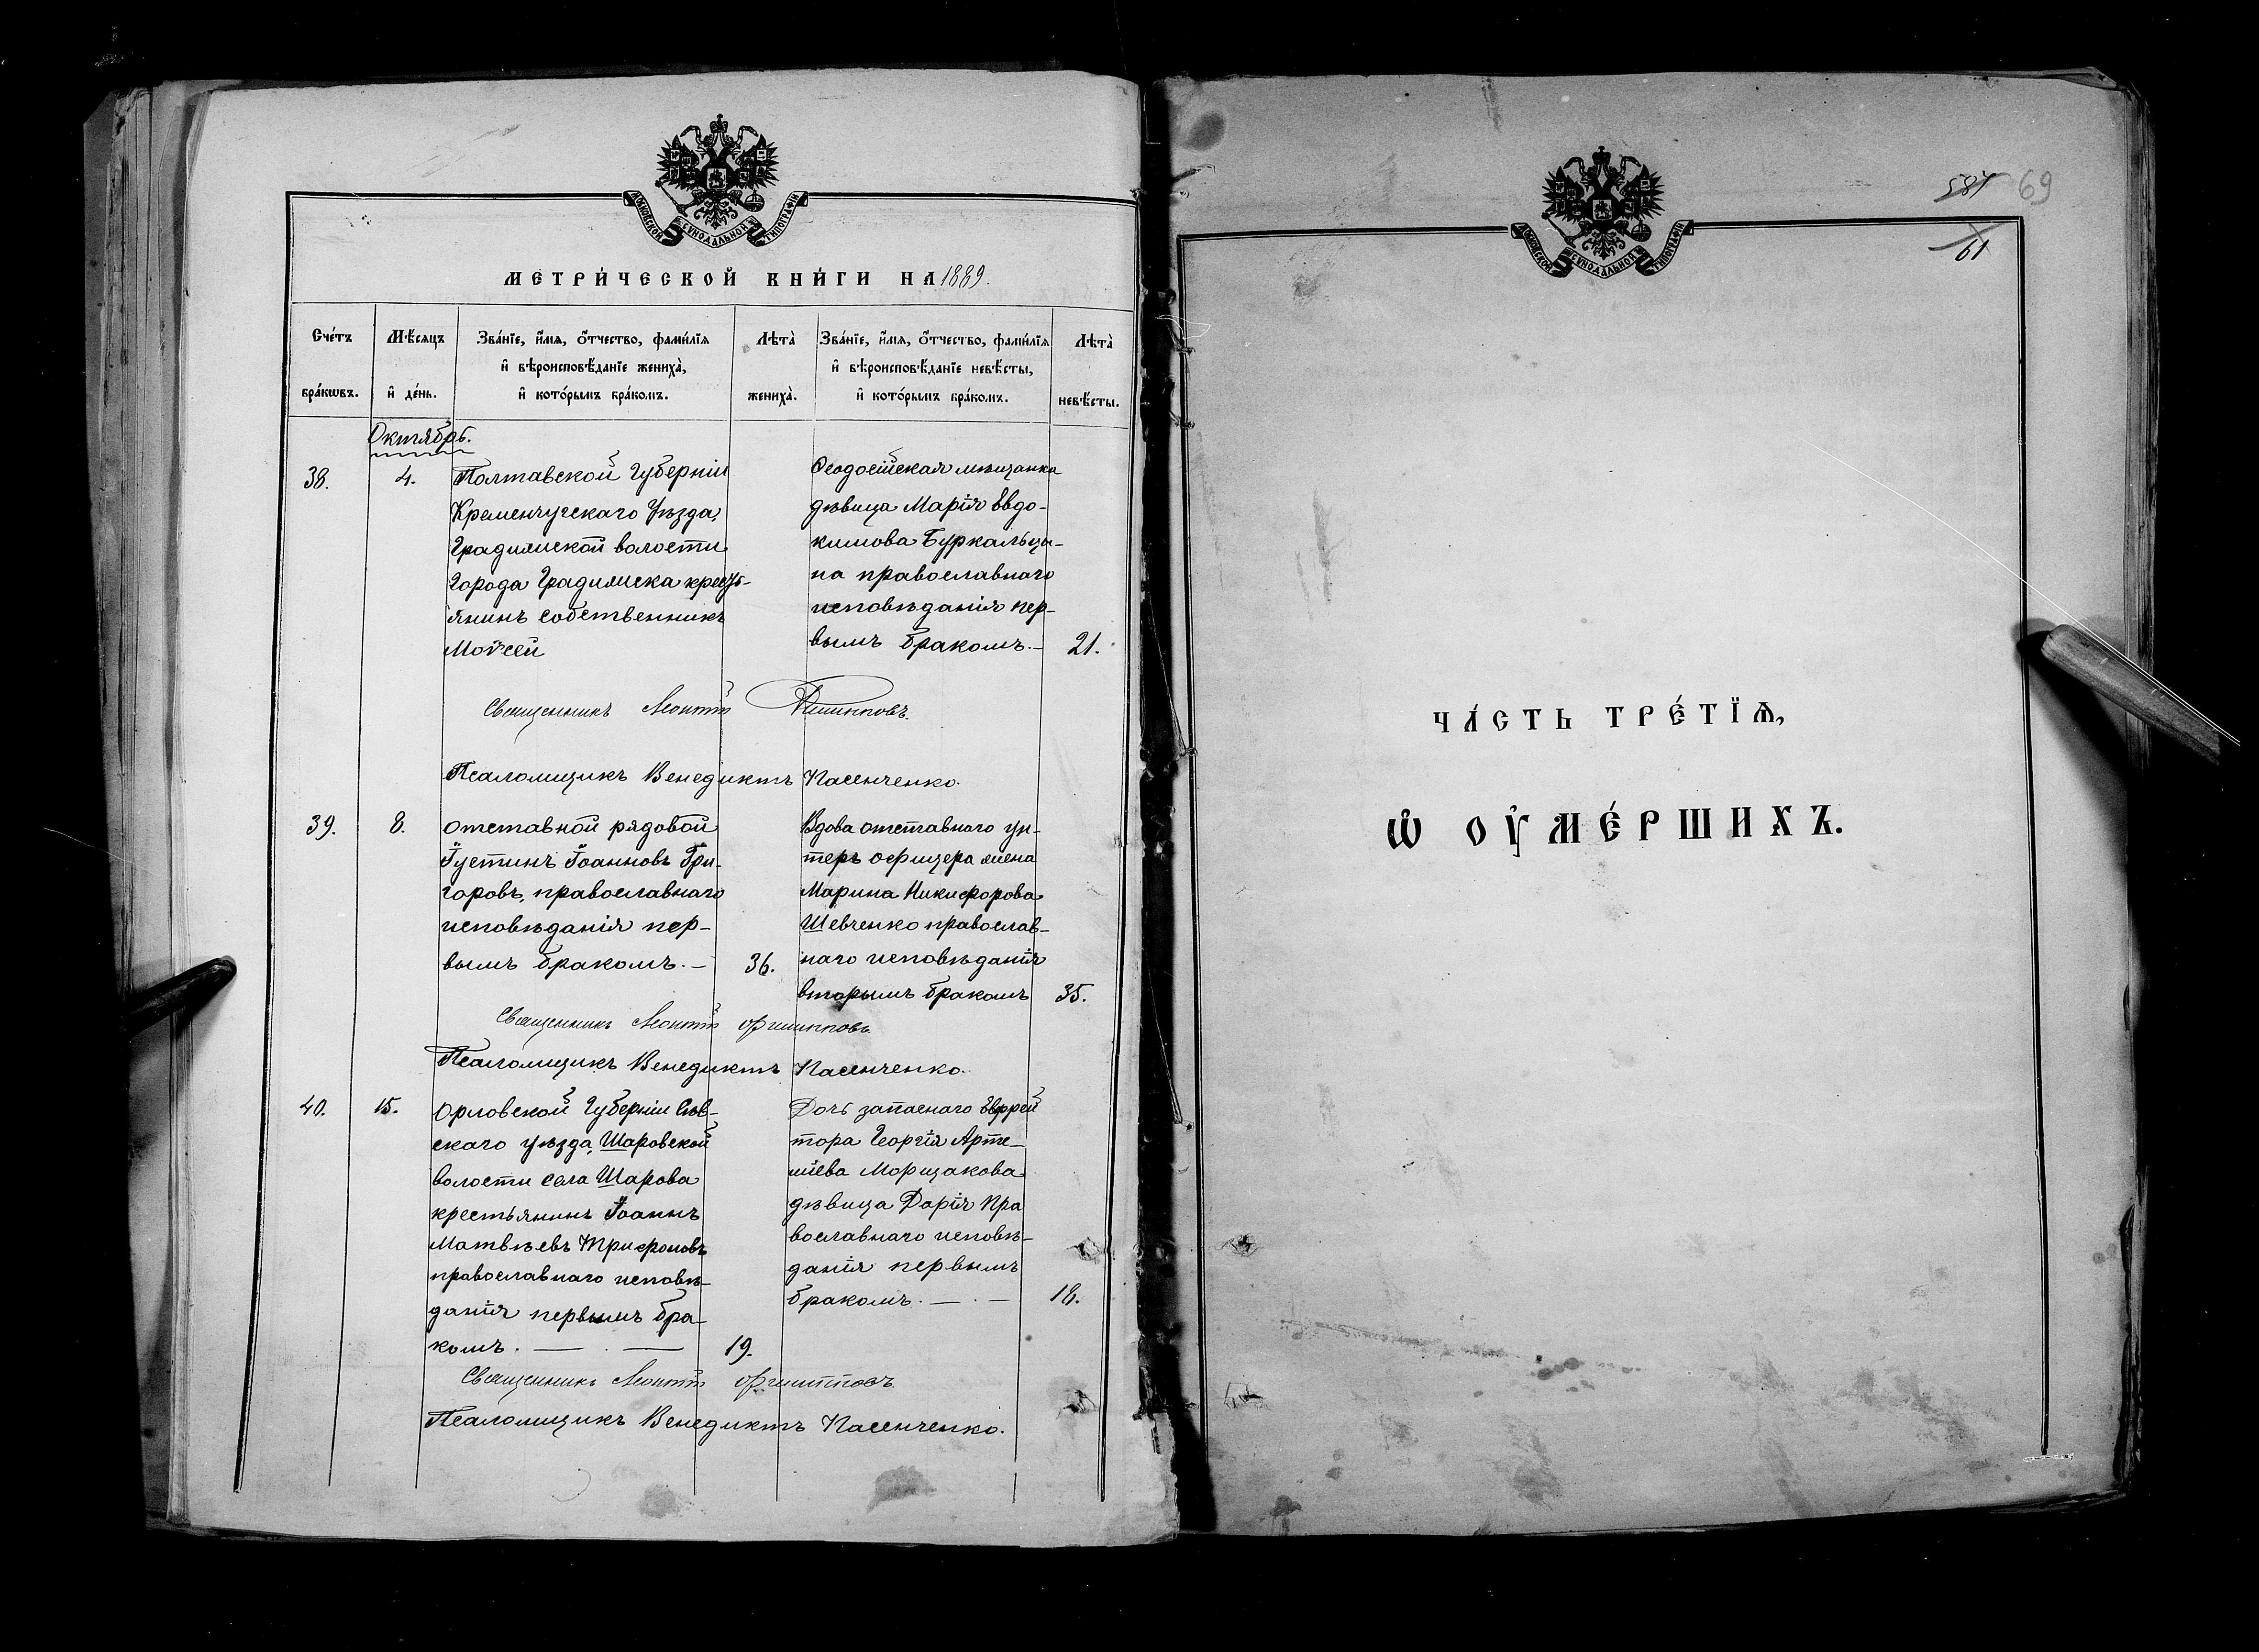 МОСКОВСКОЙ СѴНОДАЛЬНОЙ ТИПОГРАФІИ
МЕТРИ́ЧЕСКОЙ КНИ́ГИ НА 1889.
Сче́тъ бра́кѡвъ.
Мѣ́сяцъ и҆ де́нь.
Зва́нїе, и҆́мѧ, ѻ҆́тчество, фами́лїѧ
и҆ вѣроисповѣ́данїе жениха̀,
и҆ кото́рымъ бра́комъ.
Лѣта̀ жениха̀.
Зва́нїе, и҆́мѧ, ѻ҆́тчество, фами́лїѧ
и҆ вѣроисповѣ́данїе невѣ́сты,
и҆ кото́рымъ бра́комъ.
Лѣта̀ невѣ́сты.
Октябрь.
38.
4.
Полтавской Губерніи
Кременчугскаго Уѣзда,
Градижской волости
Города Градижска кресть-
янинъ собственникъ
Моѵсей
Ѳеодосійская мѣщанка
дѣвица Марія Евдо-
кимова Буркальце-
на православнаго
исповѣданія пер-
вымъ бракомъ.—
21.
Священникъ Леонтій Филипповъ.
Псаломщикъ Венедиктъ Пасенченко.
39.
8.
отставной рядовой
Іустинъ Іоанновъ Гри-
горовъ, православнаго
исповѣданія пер-
вымъ бракомъ.—
36.
Вдова отставнаго ун-
теръ офицера жена
Марина Никифорова
Шевченко православ-
наго исповѣданія
вторымъ бракомъ
35.
Священникъ Леонтій Филипповъ.
Псаломщикъ Венедиктъ Пасенченко.
40.
15.
Орловской Губерніи Сѣв-
скаго уѣзда, Шаровской
волости села Шарова
крестьянинъ Іоаннъ
Матвѣевъ Трифоновъ
православнаго исповѣ-
данія первымъ бра-
комъ. — . —
19.
Дочь запаснаго Ефрей
тора Георгія Арте-
міева Морщакова
дѣвица Дарія Пра
вославнаго исповѣ-
данія первымъ
бракомъ. — . —
18.
Священникъ Леонтій Филипповъ.
Псаломщикъ Венедиктъ Пасенченко.
МОСКОВСКОЙ СѴНОДАЛЬНОЙ ТИПОГРАФІИ
69
61
ЧА́СТЬ ТРЕ́ТЇѦ,
Ѡ҆ ОУ҆МЕ́РШИХЪ.